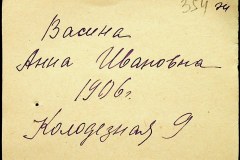 354 74
Васина
Анна Ивановна
1906г.
Колодезная 9